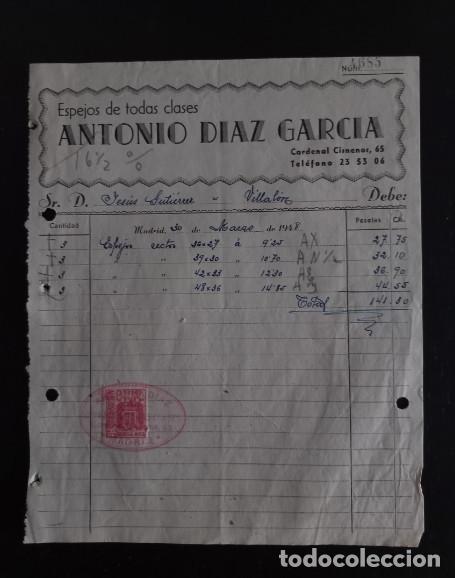 Núm. 1685
Espejos de todas clases
ANTONIO DIAZ GARCIA
16 1/2 %
Cardenal Cisneros, 65
Teléfono 23 53 06
Sr. D. Jesús Gutiérrez - Villalón Debe:
Cantidad Pesetas Cts.
Madrid, 30 de Marzo de 1948
3 Espejos rectos 36x27 á 9'25 27 75
3 " " 39x30 " 10'70 32 10
3 " " 42x33 " 12'30 36 90
3 " " 48x36 " 14'85 44 55
Total 141 30
todocoleccion.net